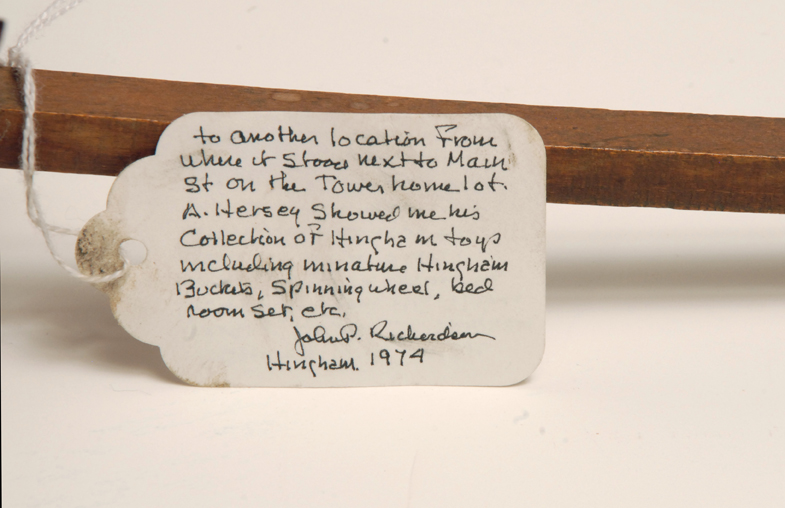 to another location From
where it stood next to Main
St on the Tower home lot.
A. Hersey Showed me his
Collection of Hingham toys
including minature Hingham
Buckets, Spinning wheel, bed
room set, etc.
John P. Richardson
Hingham. 1974